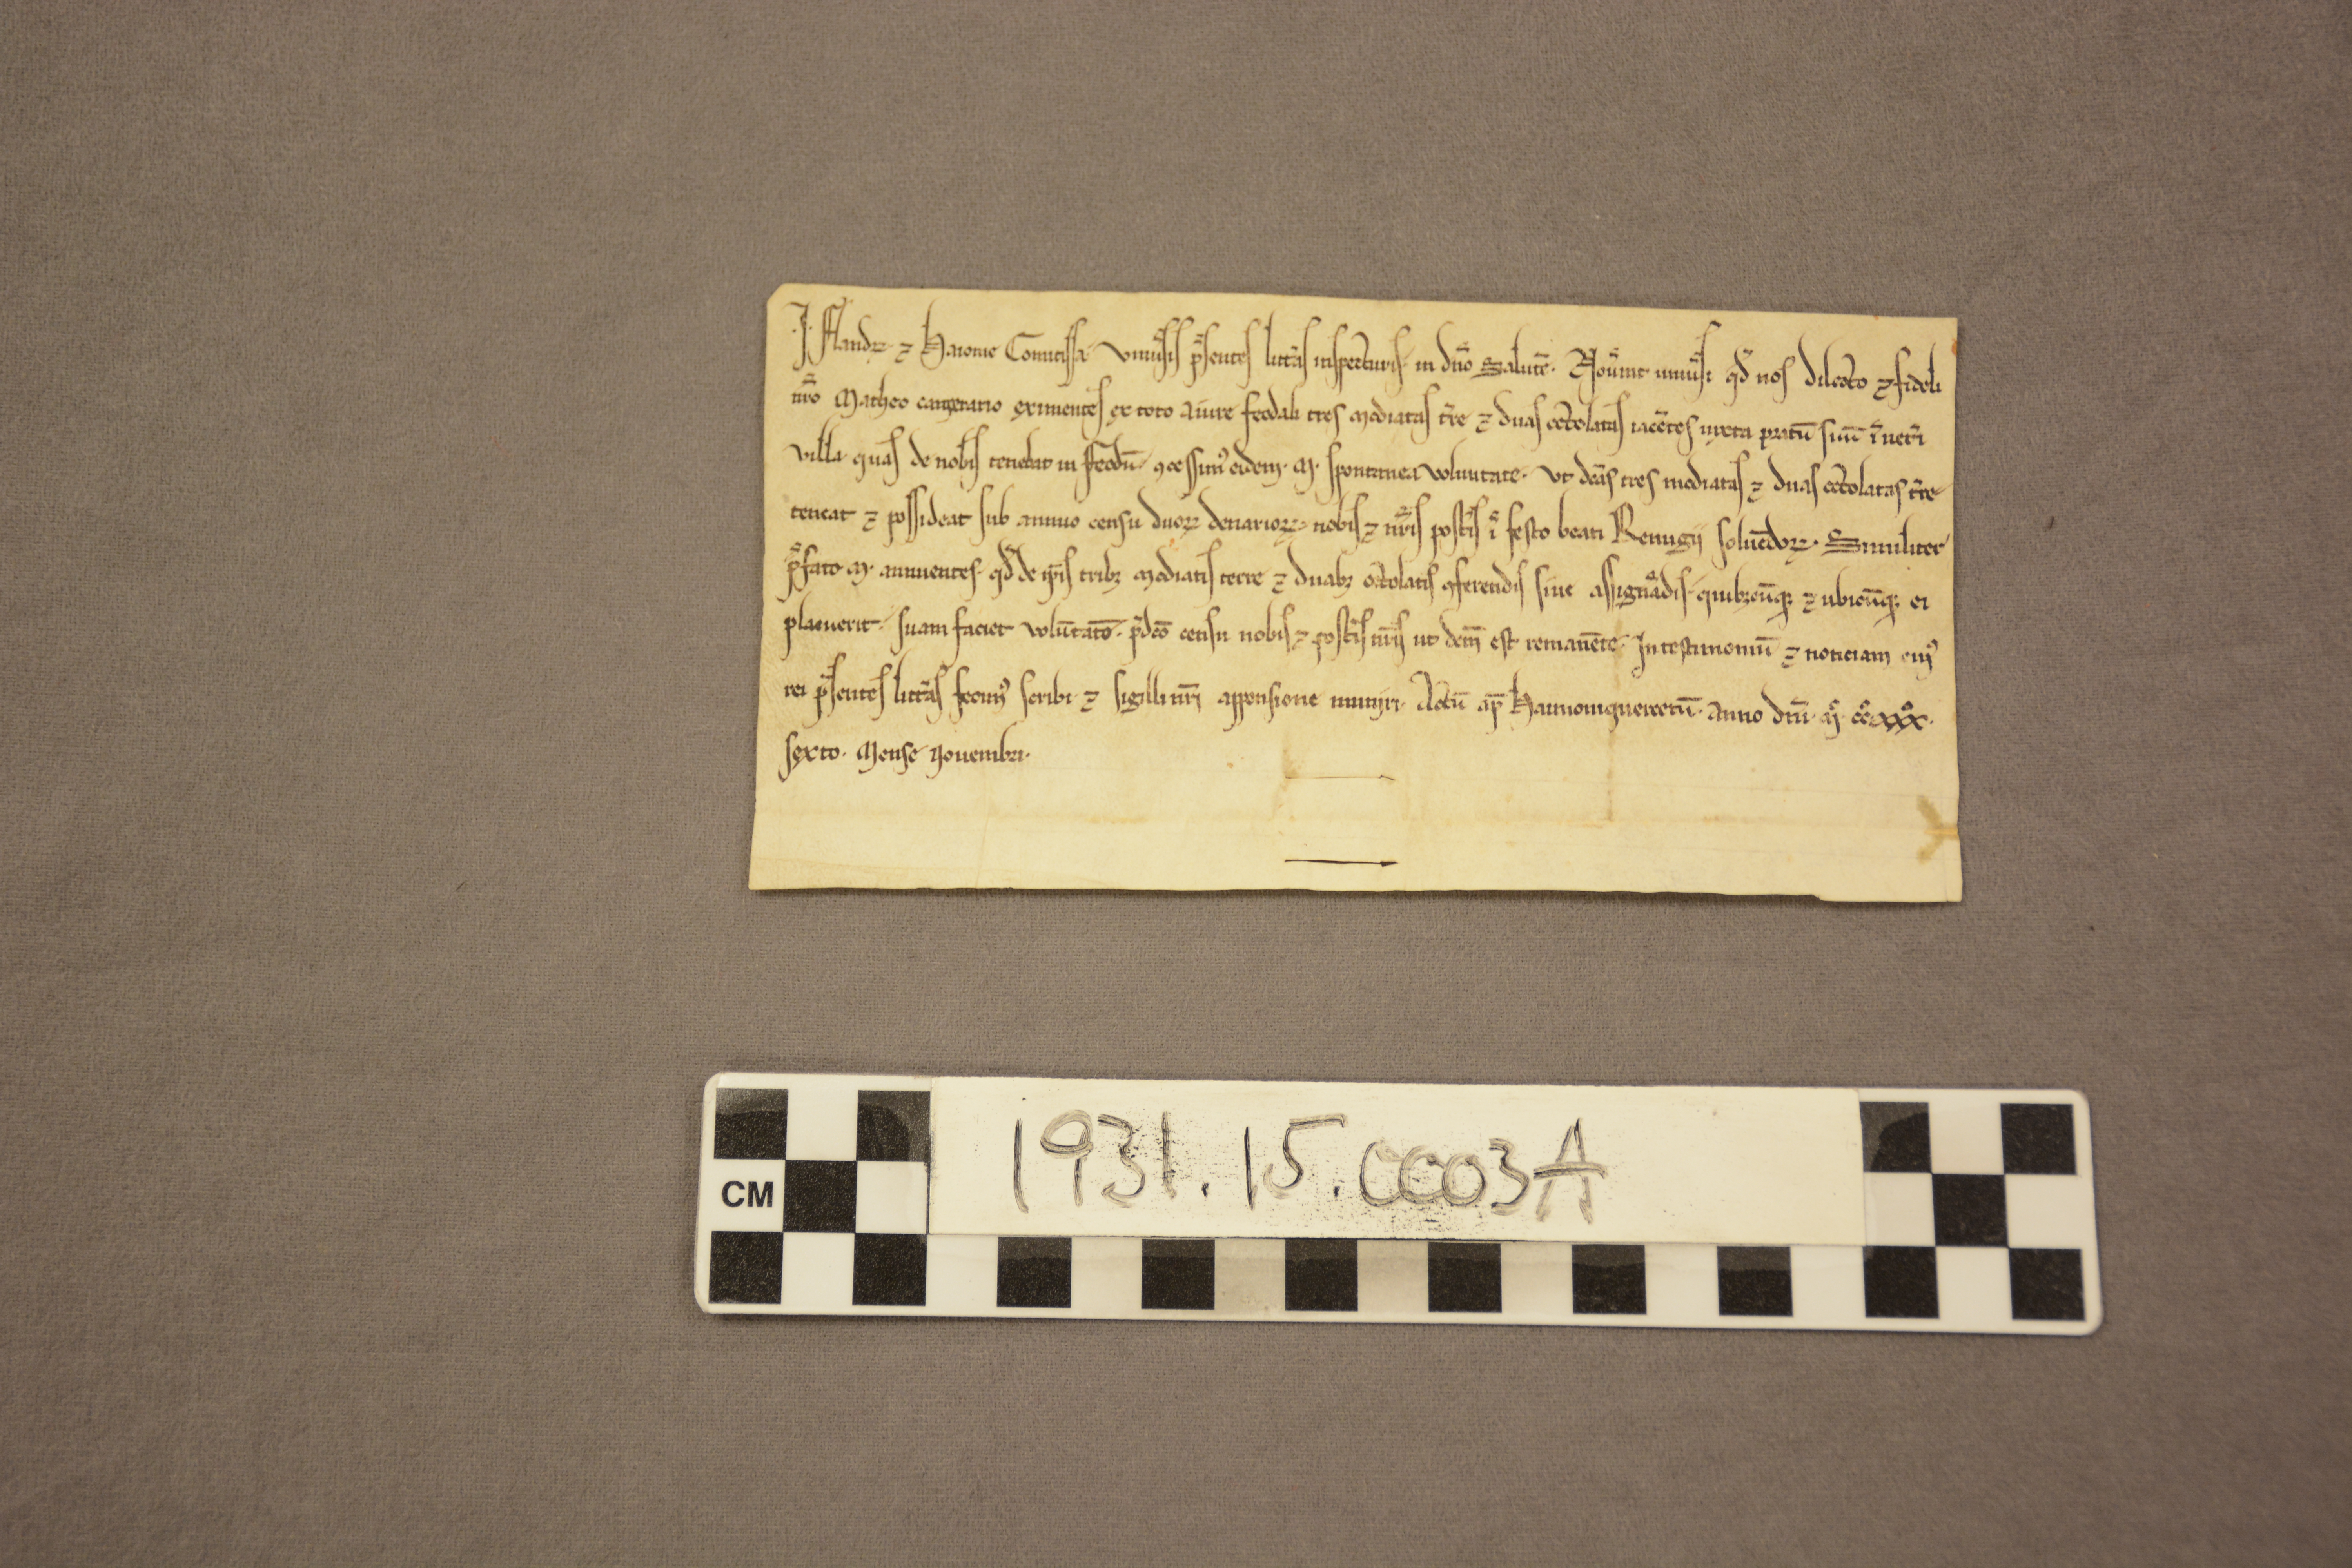 ·J· Fland᷒ ⁊ Haionie Comitissa· Vniu͛sis p͛sentes litt͛as inspecturis· in dn̄o Salutē· Nou͛int uniu͛si qd̄ nos dilecto ⁊ fideli
nr̄o Matheo camerario eximentes ex toto a iure feodali tres mediatas t͛re ⁊ duas octolatas iacētes iuxta pratū suū ī uet͛i
villa· quas de nobis tenebat in feodū· ꝯcessimꝰ eidem· M· spontanea voluntate· vt dc̄as tres mediatas ⁊ duas octolatas t͛re
teneat ⁊ possideat sub annuo censu duoꝝ denarioꝝ· nobis ⁊ nr̄is post͛is ī festo beati Remigij soluēdoꝝ· Similiter
p͛fato M· annuentes· qd̄ de ip̄is tribꝫ mediatis terre ⁊ duabꝫ octolatis ꝯferendis siue assignādis· quibꝫcūqꝫ ⁊ ubicūqꝫ ei
placuerit· suam faciet volūtatē· p̄dc̄o censu nobis ⁊ post͛is nr̄is ut dcm̄ est remanēte· In testimoniū ⁊ noticiam eiꝰ
rei p͛sentes litt͛as fecimꝰ scribi ⁊ sigilli nr̄i appensione muniri· Actū ap̄ Haimonisquercetū· Anno dn̄i· m̊· cc̊· xxx̊·
sexto· Mense Nouembri·
CM
1931.15.0003A